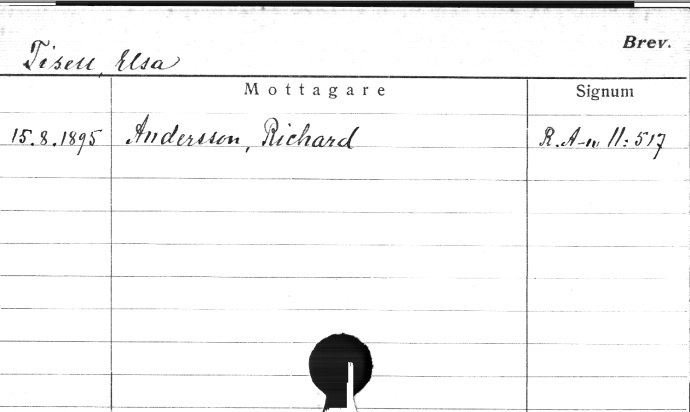 Brev.
Tisell, Elsa
Mottagare Signum
15.8.1895 Andersson, Richard R.A-n II:517